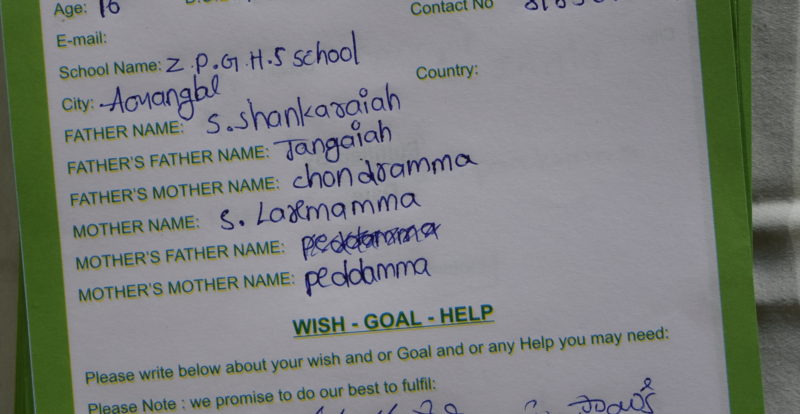 Age: 16
Contact No
E-mail:
School Name: Z.P.G.H.S school
Country:
City: Aouangbl
FATHER NAME: S.Shankaraiah
FATHER'S FATHER NAME: Jangaiah
FATHER'S MOTHER NAME: chondramma
MOTHER NAME: S. Laxmamma
MOTHER'S FATHER NAME:
MOTHER'S MOTHER NAME: peddamma
WISH - GOAL - HELP
Please write below about your wish and or Goal and or any Help you may need:
Please Note : we promise to do our best to fulfil: